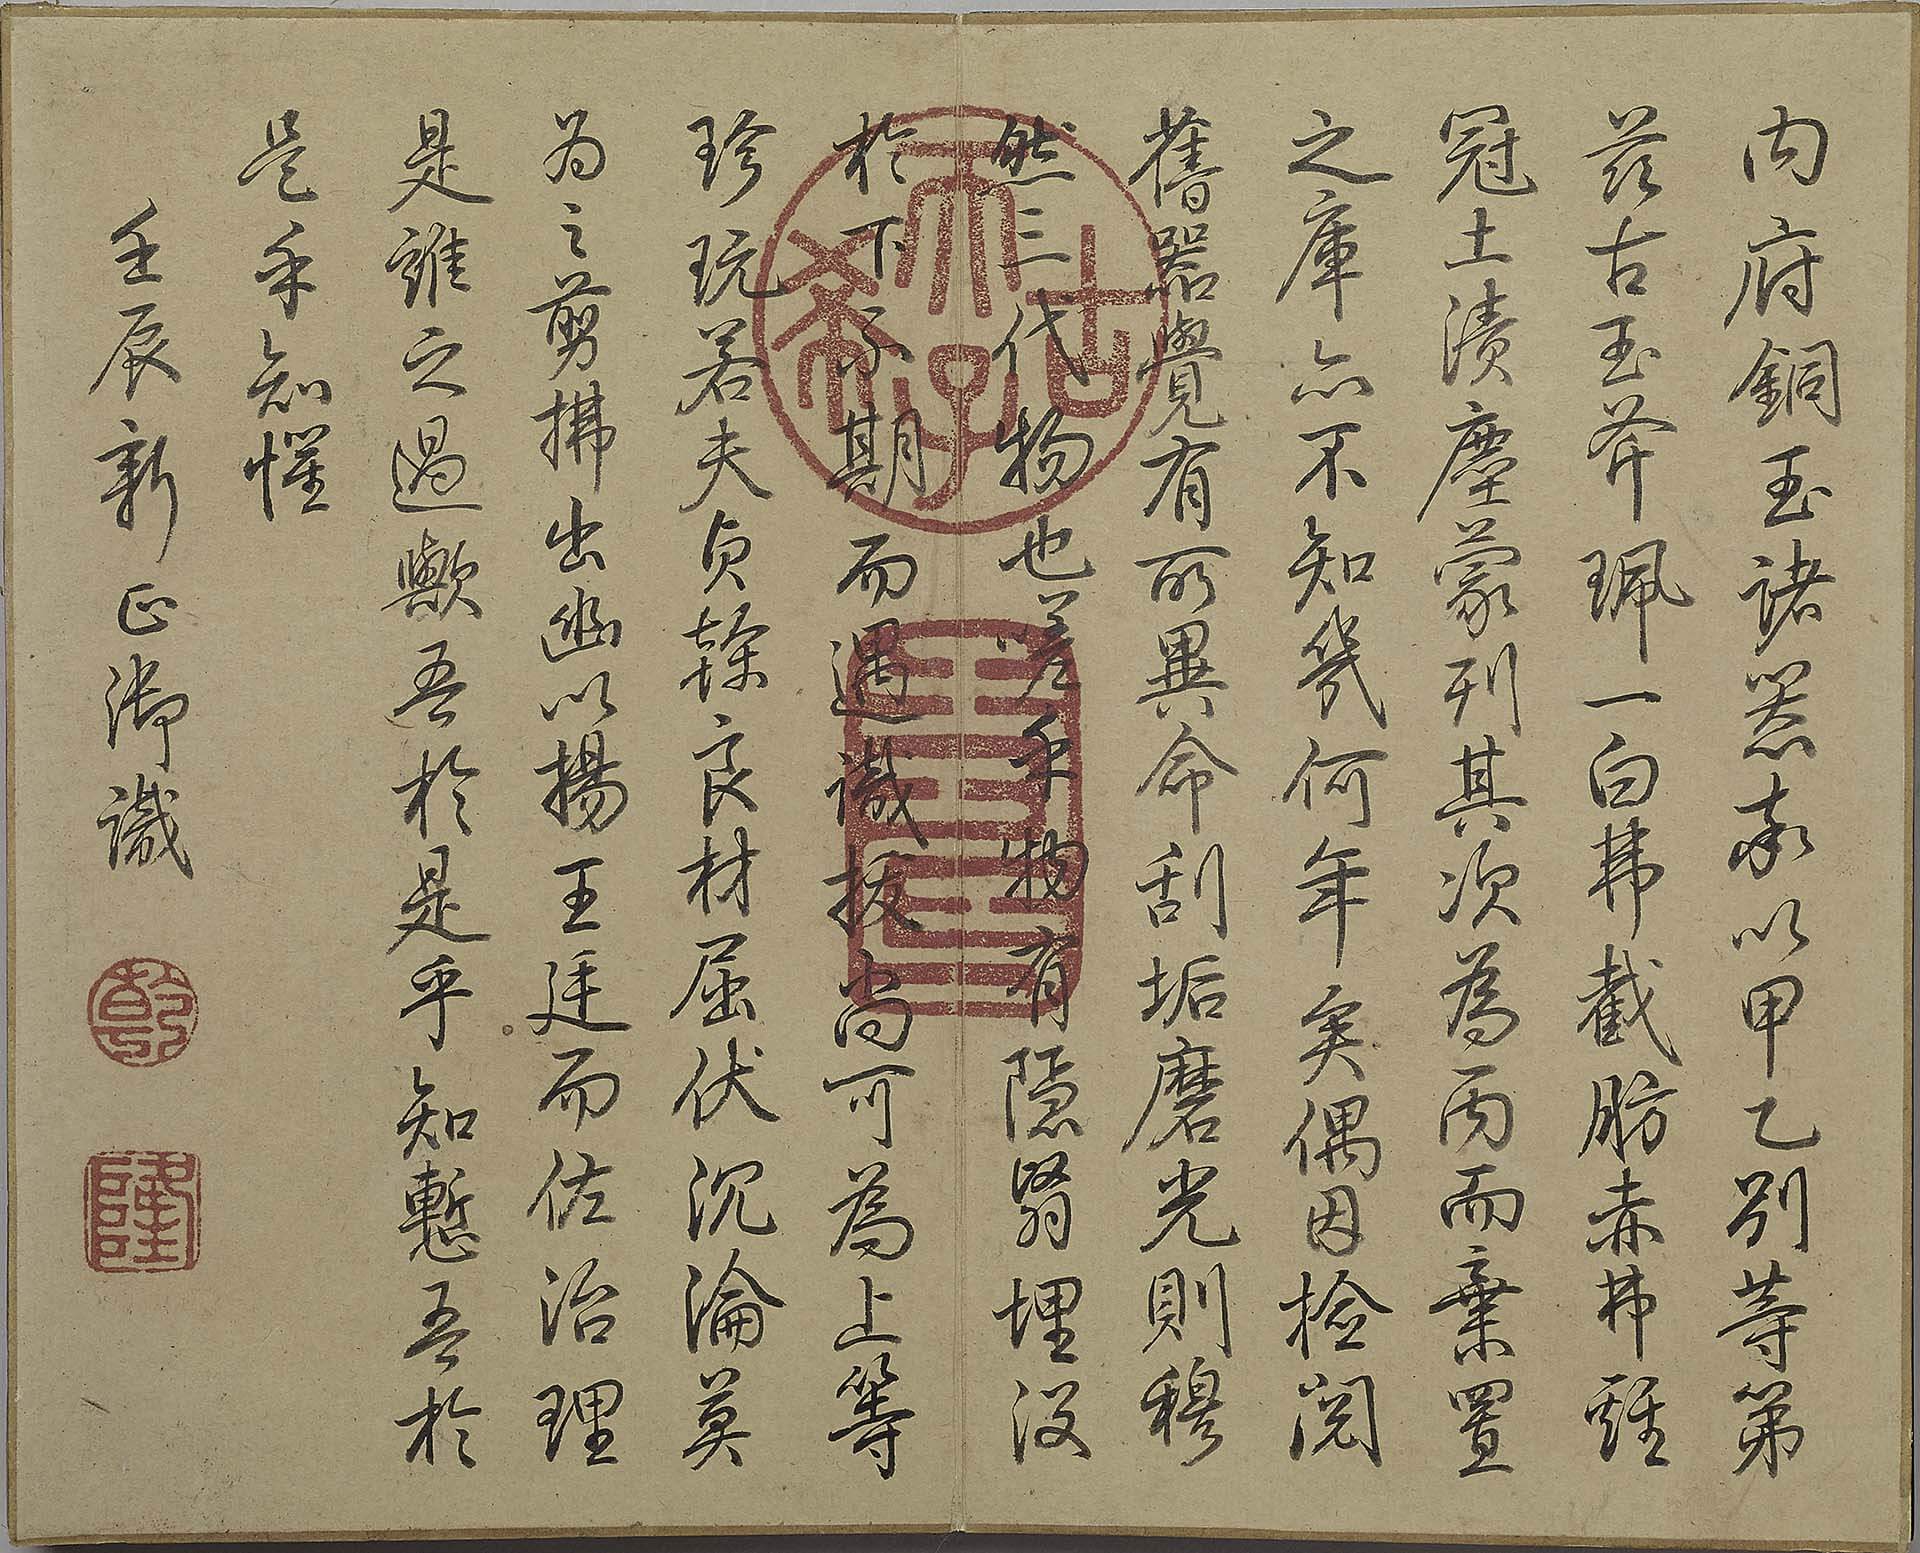 內府銅玉諸器率以甲乙別等第
茲古玉斧珮一白韍截肪赤韍
冠土漬塵蒙列其次為丙而棄置
之庫亦不知幾何年矣偶因檢閱
舊器覺有所異命刮垢磨光則穆
然三代物也嗟乎物有隱翳埋沒
於下不期而遇識拔尚可為上等
珍玩若夫貞幹良材屈伏沉淪莫
為之剪拂出幽以揚王廷而佐治理
是誰之過歟吾於是乎知慙吾於
是乎知懼
壬辰新正御識
乾
隆
古稀天子